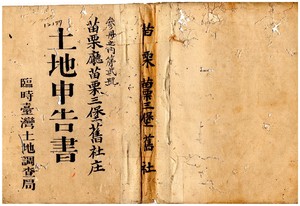 參冊之內第貳號
苗栗廳苗栗三堡舊社庄
土地申告書
臨時臺灣土地調查局
苗栗 苗栗三堡 舊社